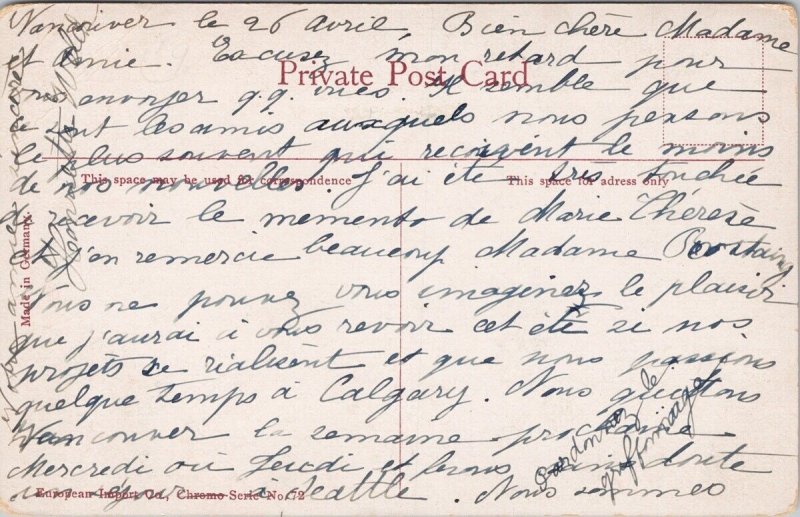 Vancouver le 26 avril, Bien chère Madame
et amie. Excusez mon retard pour
vous envoyer q.q. vues. Il semble que
Private Post Card
ce sont les amis auxquels nous pensons
le plus souvent qui reçoivent le moins
de nos nouvelles. J'ai été très touchée
This space may be used for correspondence
This space for adress only
d'avoir le memento de Marie Thérèse
et j'en remercie beaucoup Madame
Vous ne pouvez vous imaginez le plaisir
que j'aurai à vous revoir cet été si nos
projets se rialisent et que nous passions
quelque temps à Calgary. Nous quittons
Vancouver la semaine prochaine
Mercredi ou Jeudi et ferons sans doute
un séjour à Seattle. Nous sommes
pardonnez le
griffonnage
Made in Germany.
European Import Co., Chromo Serie No. 72